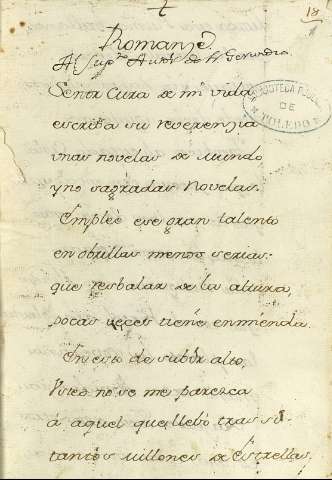 18
Romanze
Al Sup.^to Autor de Fr. Gerundio
Señor Cura de mi vida
escriba su reverenzia
unas novelas de mundo,
y no sagradas Novelas.
BIBLIOTECA
DE
TOLEDO
Empleè ese gran talento
en obrillas menos serias:
que resbalar de la altura,
pocas veces tiene enmienda.
En esto de subir alto,
Usted no se me parezca
à aquel que llebò tras sì
tantos Millones de Estrellas.